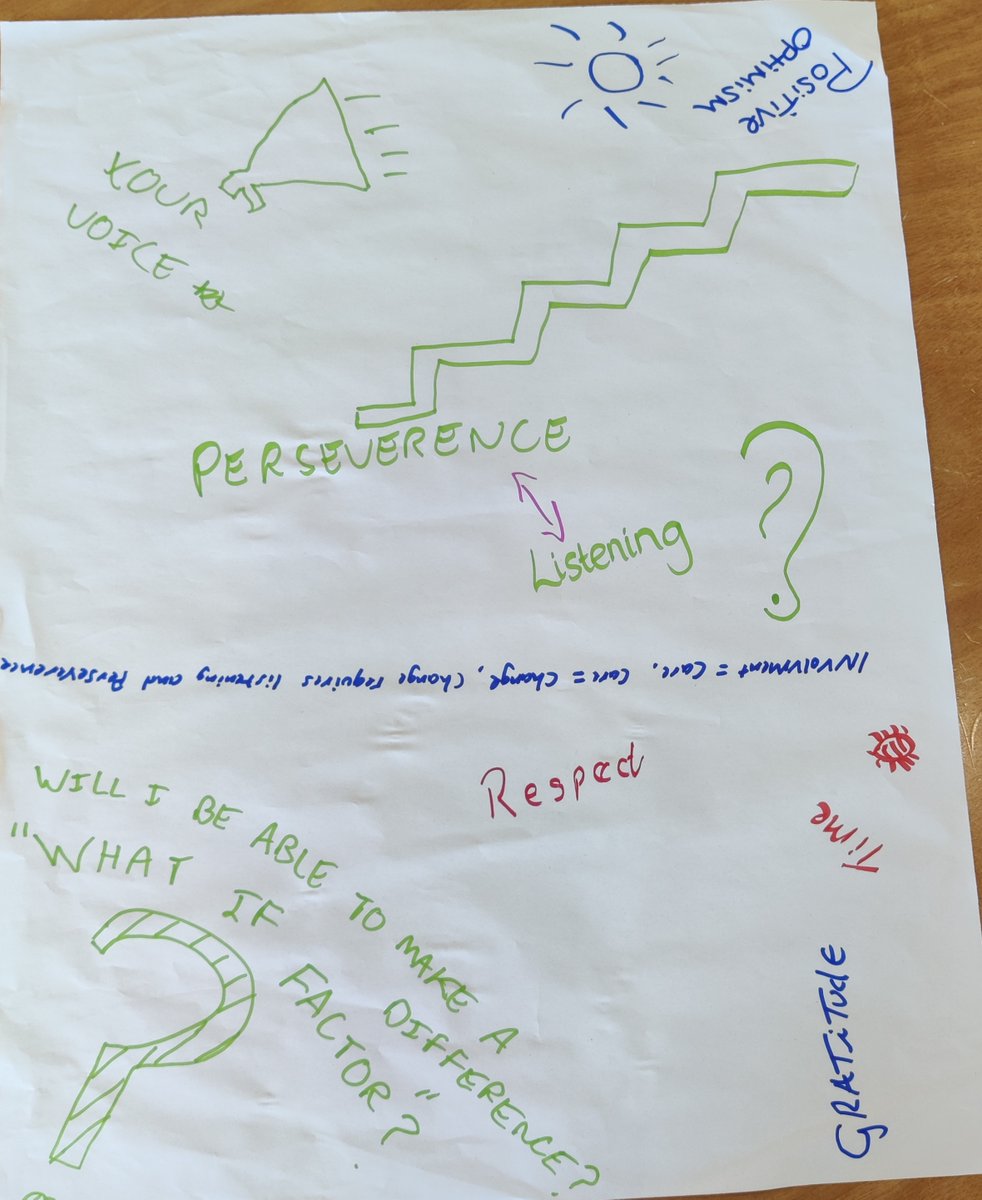 POSITIVE
OPTIMISM
YOUR
VOICE
PERSEVERENCE
Listening
INVOlVMENT = Care, Care = Change, Change requires listening and Perseverence
Respect
Time
WILL I BE ABLE TO MAKE A DIFFERENCE?
"WHAT IF FACTOR"?
GRATITUDE